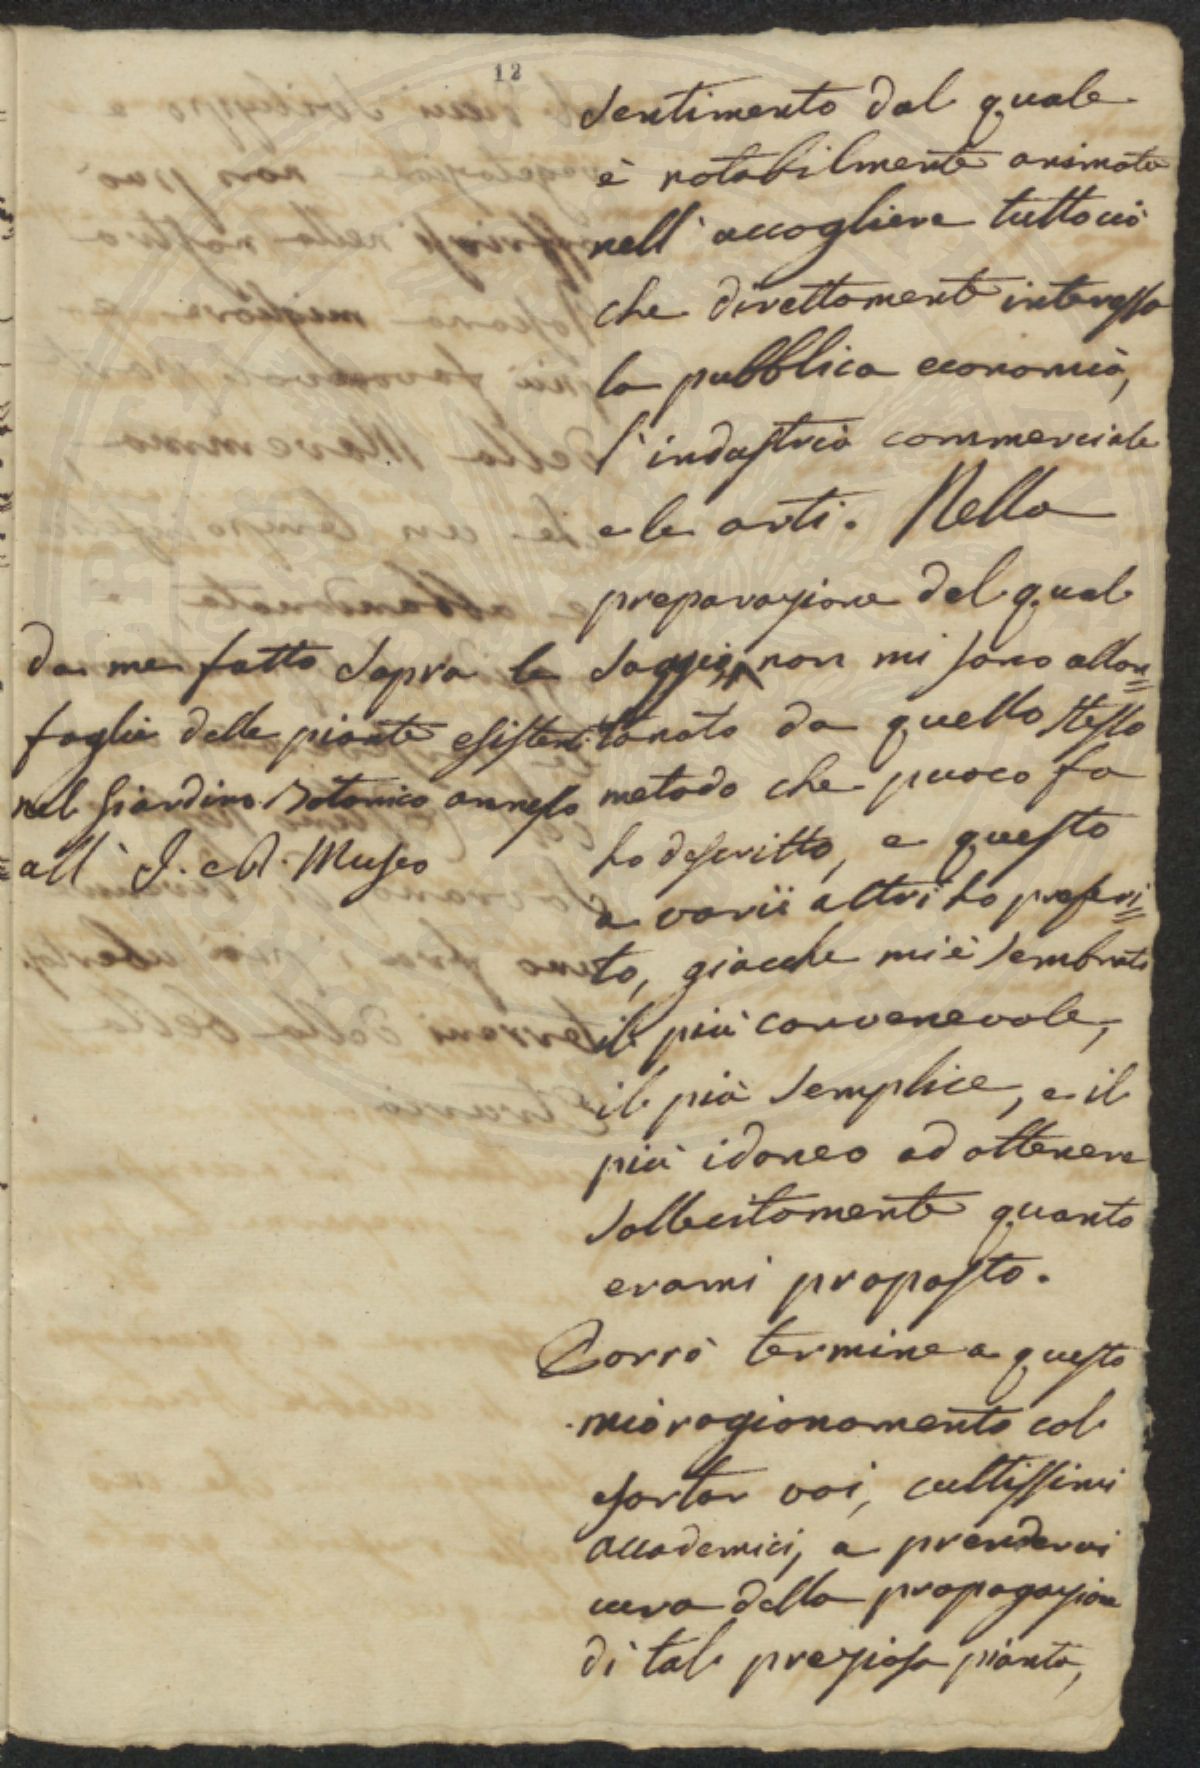 12
sentimento dal quale
è notabilmente animata
nell' accogliere tuttociò
che direttamente interessa
la pubblica economia,
l' industria commerciale
e le arti. Nella
preparazione del qual
saggio, ^ non mi sono allon=
tanato da quello stesso
metodo che puoco fa
ho descritto, e questo
a varii altri ho preferi=
to, giacche mi è sembrato
il più convenevole,
il più semplice, e il
più idoneo ad ottenere
sollecitamente quanto
erami proposto.
Porrò termine a questo
mio ragionamento col
esortar voi, cultissimi
accademici, a prendervi
cura della propagazione
di tale preziosa pianta,
da me fatto sopra le
foglie delle piante esistenti
nel Giardino Botonico annesso
all' I. e R. Museo